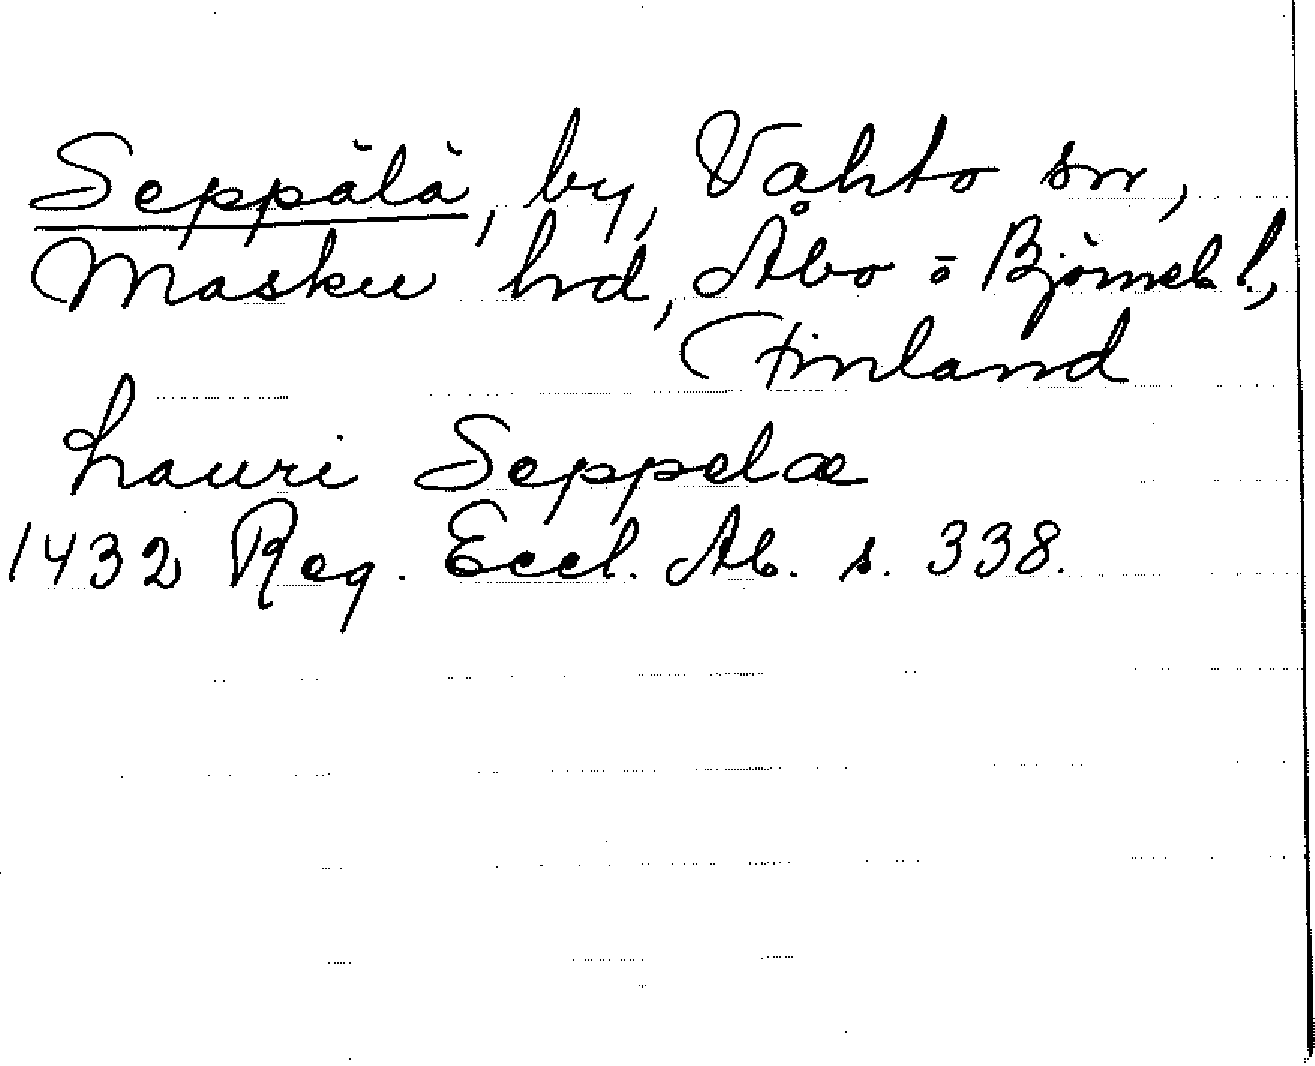 Seppälä, by, Vahto sn,
Masku hd, Åbo o Björneb l.,
Finland
Lauri Seppelæ
1432 Reg. Eccl. Ab. s. 338.